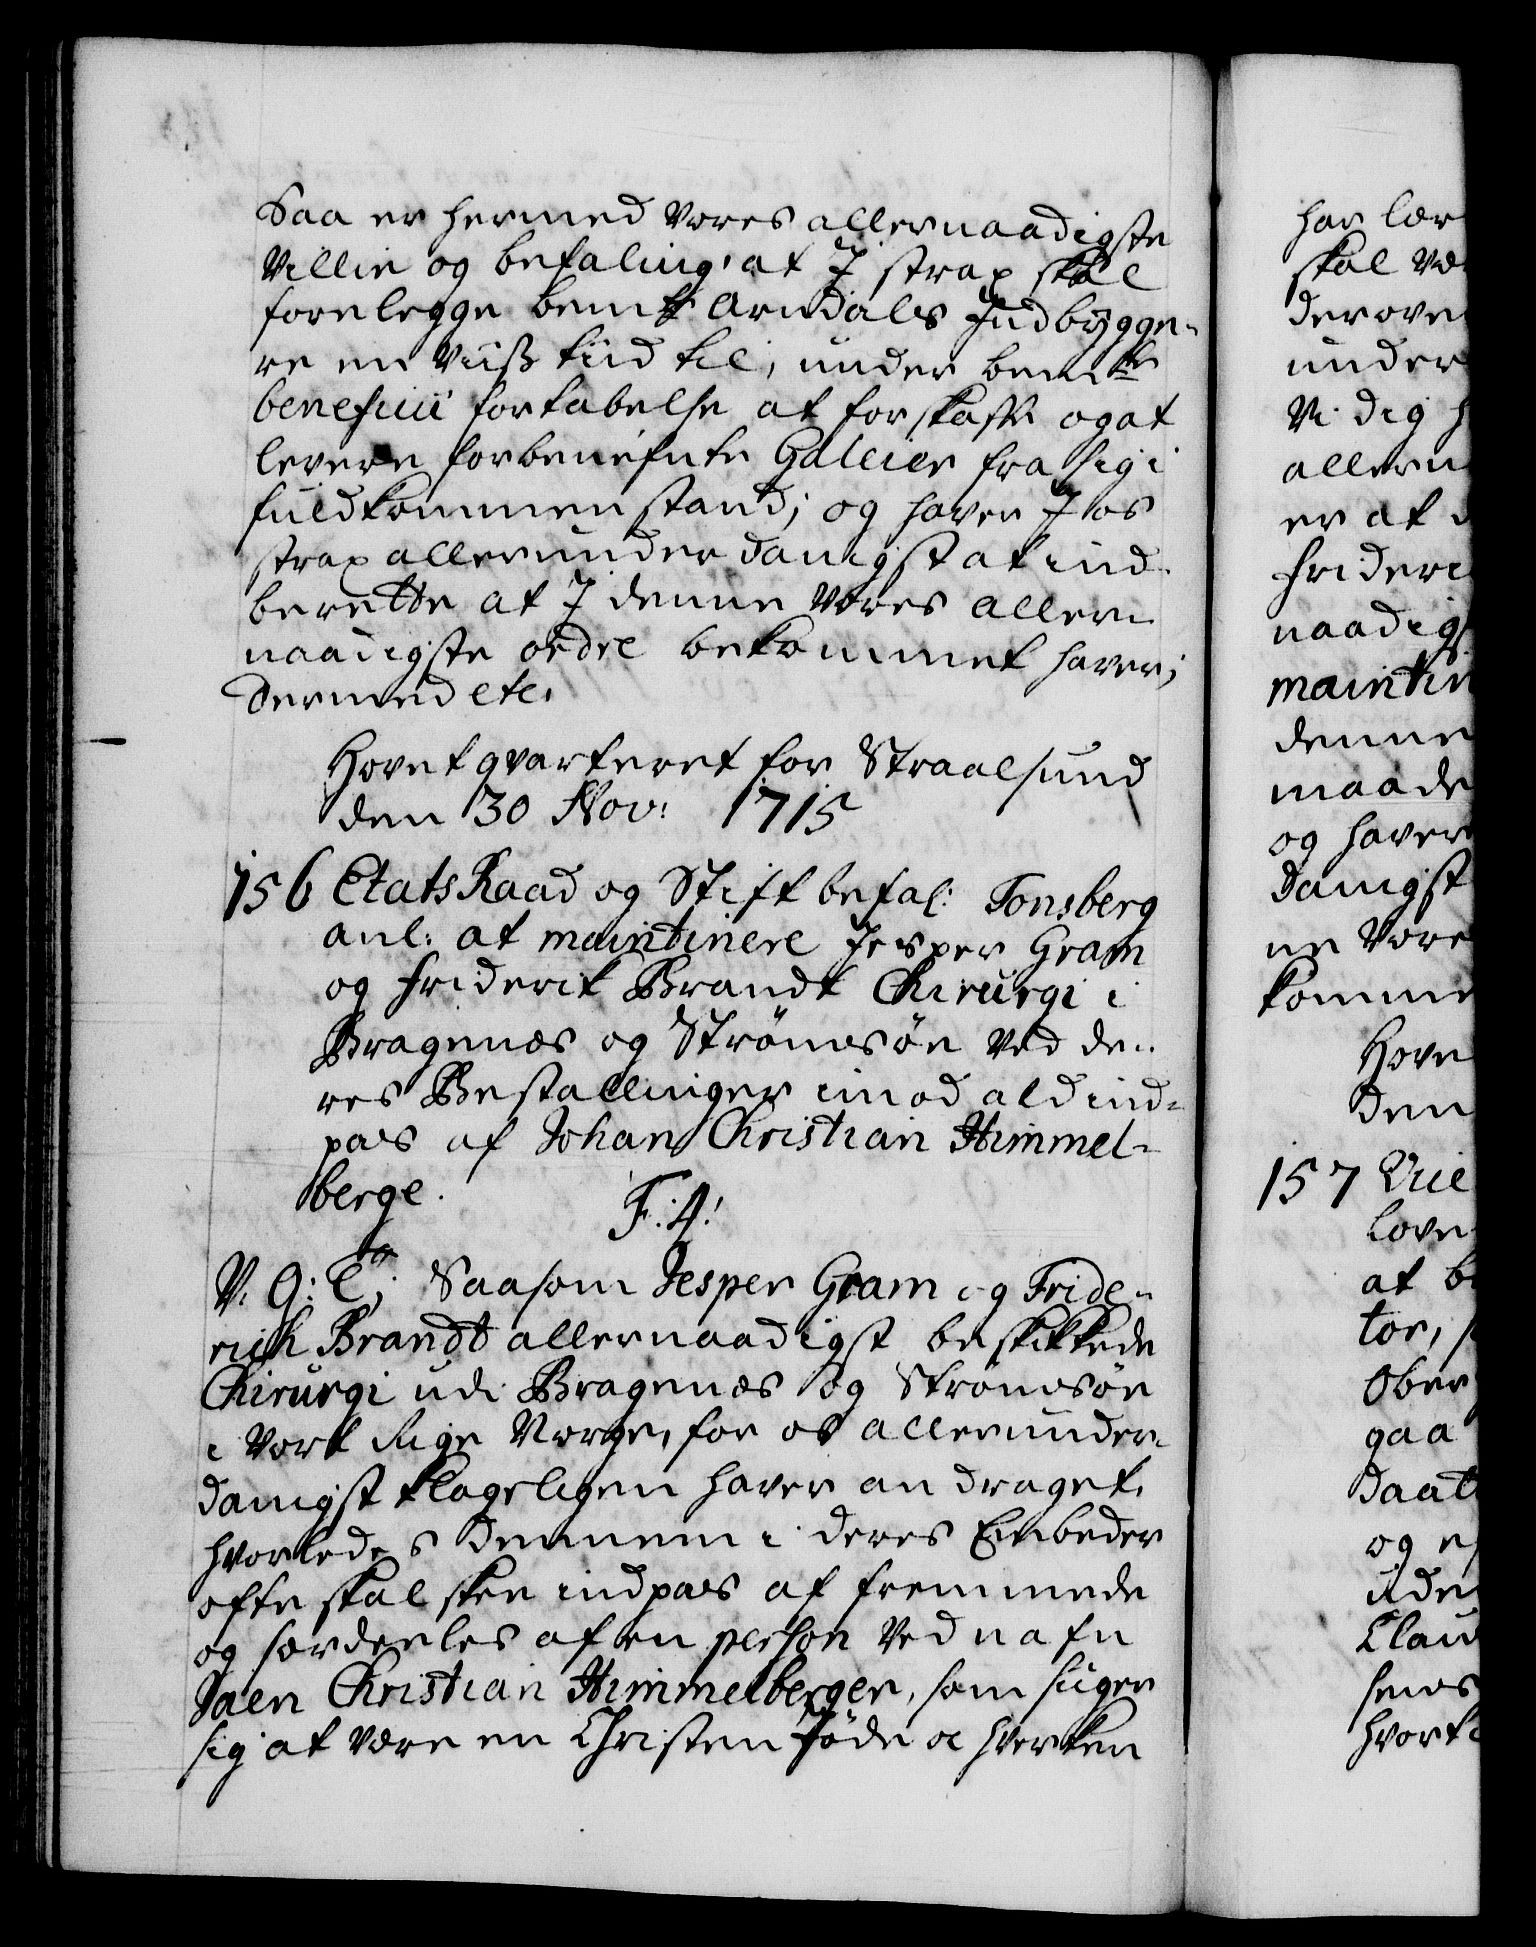 Saa er hermed Vores allernaadigste
Villie og befaling, at I strax skal
forelegge bemte Arndals Indbygge-
re en viiss tiid til, under bemte
beneficii fortabelse at forskaffe og at
levere forbenefnte Galleier fra sig i
fuldkommen stand; og haver I os
strax allerunderdanigst at ind-
berette at I denne Vores aller-
naadigste ordre bekommet haver;
Dermed etc.
Hovetqvarteret for Straalsund
den 30 Nov: 1715
156 EtatsRaad og Stiftbefal: Tonsberg
anl: at maintinere Jesper Gram
og Friderik Brandt Chirurgi i
Bragenæs og Strömsöe ved de-
res Bestallinger imod ald ind-
pas af Johan Christian Himmel-
berge.
F. 4.
V. G: To: Saasom Jesper Gram og Fride-
rich Brandt allernaadigst beskikkede
Chirurgi udi Bragenæs og Strömsöe
i vort Rige Norge, for os allerunder-
danigst klageligen haver andraget,
hvorledes dennem i deres Embeder
ofte skal skee indpas af fremmede
og særdeeles af en person ved nafn
Joen Christian Himmelberger, som siiger
sig at være en Christen Jöde oc hverken
har lær
skal væ
derove
under
Vi dig h
allern
er at
Frideri
naadigs
maintin
denne
maade
og haver
danigst
ne Vore
komme
Hove
den
157 Vice
love
at be
tor,
Ober
gaa
daat
og
Uden
Clau
senes
hvort